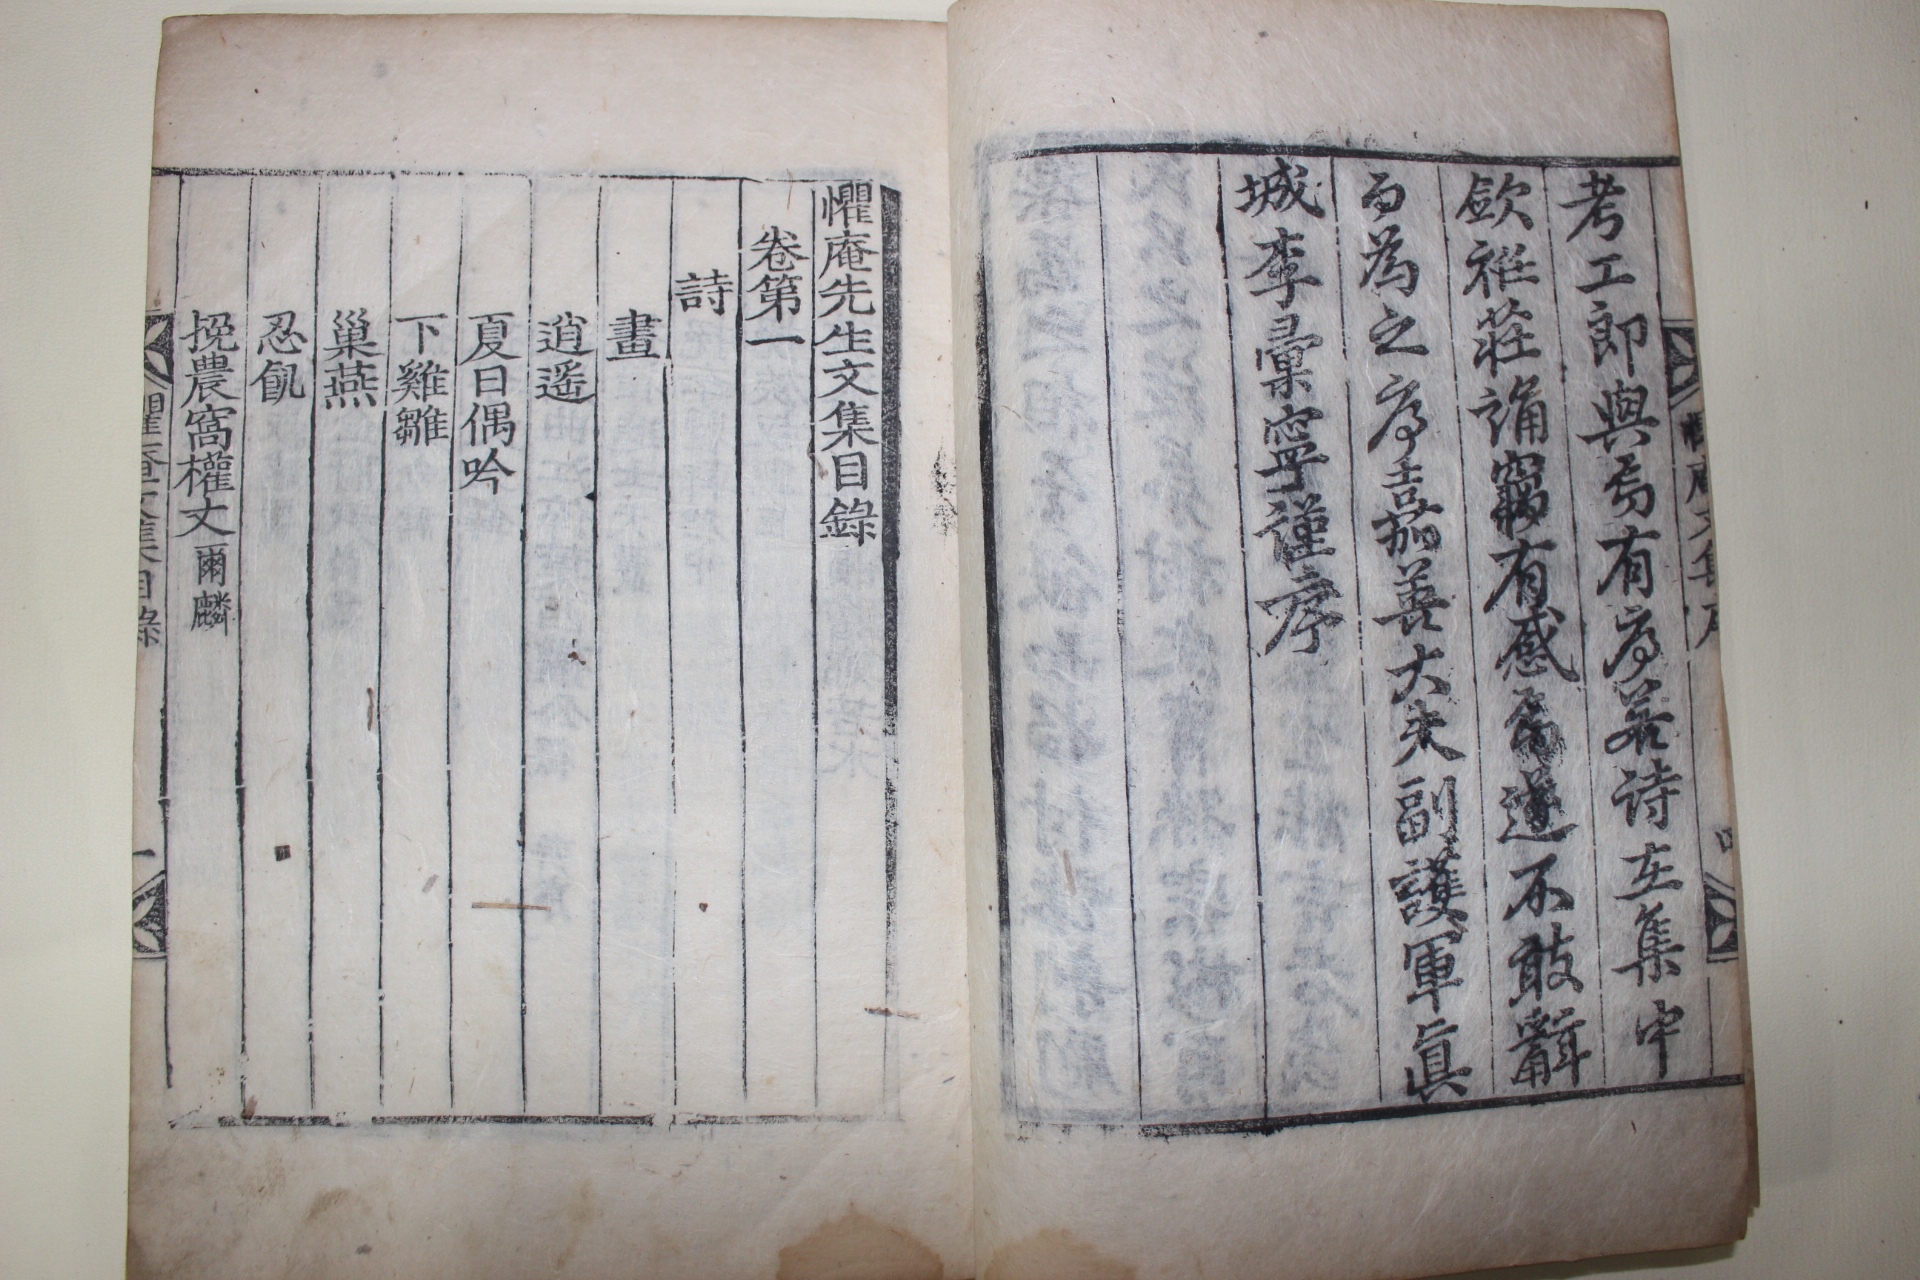 考工郎與焉有序若詩在集中
欽祉莊誦竊有感焉遂不敢辭
而爲之序嘉善大夫副護軍眞
城李彙寧謹序
懼庵先生文集目錄
卷第一
詩
畫
逍遥
夏日偶吟
下雞雛
巢燕
忍飢
挽農窩權丈爾麟
懼庵文集目錄
一